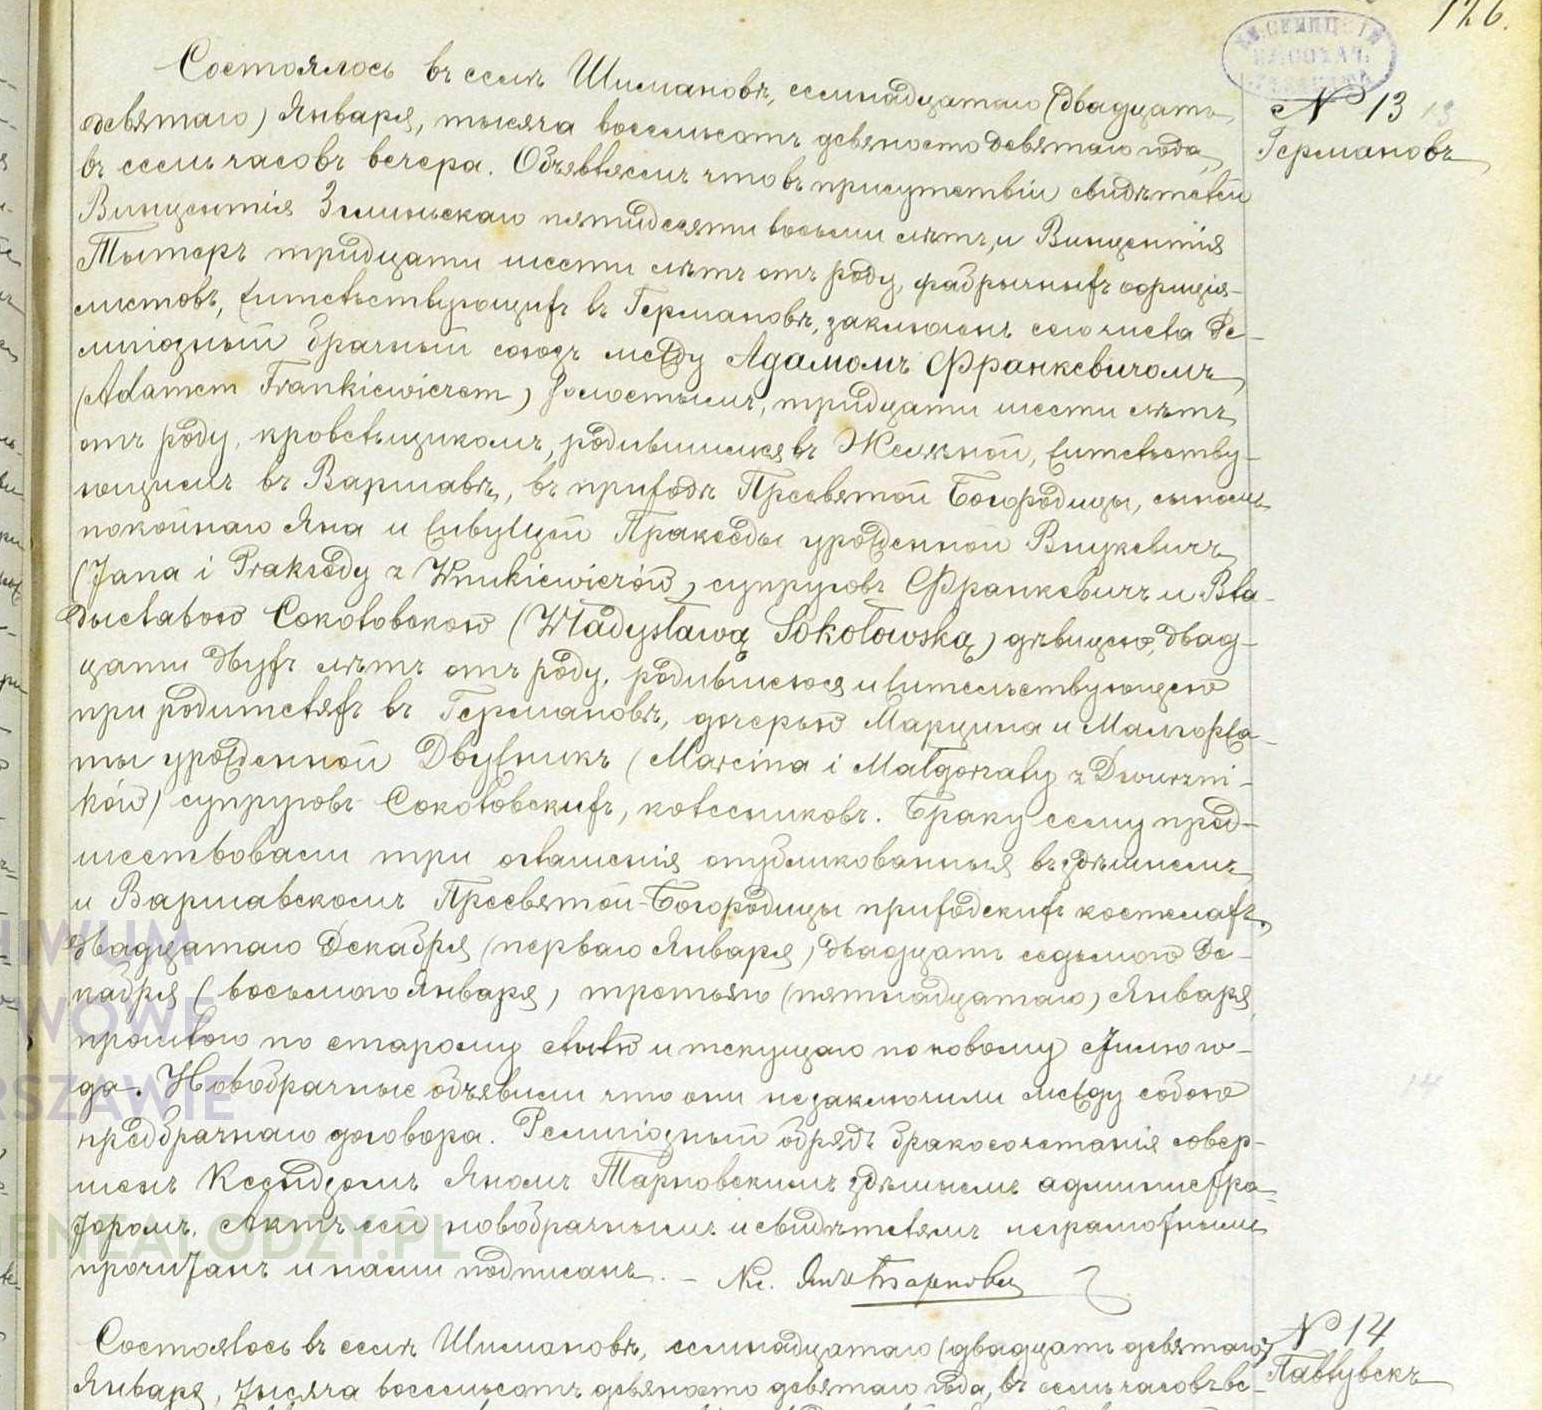 126.
№ 13
Германовъ
Состоялось въ селѣ Шимановѣ, семнадцатаго (двадцать
девятаго) Января, тысяча восемьсотъ девяносто девятаго года,
въ семь часовъ вечера. Объявляемъ что въ присутствіи свидѣтелей
Винцентія Зелиньскаго пятидесяти восьми лѣтъ, и Винцентія
Тытеръ тридцати шести лѣтъ отъ роду, фабричныхъ оффиція-
листовъ, жительствующихъ въ Германовѣ, заключенъ сего числа Ре-
лигіозный брачный союзъ между Адамомъ Франкевичомъ,
(Adamem Frankiewiczem) холостымъ, тридцати шести лѣтъ
отъ роду, кровельщикомъ, родившимся въ Желязной, жительству-
ющимъ въ Варшавѣ, въ приходѣ Пресвятой Богородицы, сыномъ
покойнаго Яна и живущей Пракседы урожденной Внукевичъ
(Jana i Praksedy z Wnukiewiczów) супруговъ Франкевичъ и Вла-
дыславою Соколовскою (Władysławą Sokołowską) дѣвицею, двад-
цати двухъ лѣтъ отъ роду, родившеюся и жительствующею
при родителяхъ въ Германовѣ, дочерью Марцина и Малгоржа-
ты урожденной Двужникъ (Marcina i Małgorzaty z Dwurzni-
ków) супруговъ Соколовскихъ, колесниковъ. Браку сему пред-
шествовали три оглашенія опубликованныя въ здѣшнемъ
и Варшавскомъ Пресвятой-Богородицы приходскихъ костелахъ,
двадцатаго Декабря (перваго Января) двадцать седьмого Де-
кабря (восьмого Января) третьяго (пятнадцатаго) Января,
прошлого по старому стилю и текущаго по новому стилю го-
да. Новобрачные объявили что они не заключили между собою
предбрачнаго договора. Религіозный обрядъ бракосочетанія совер-
шенъ Ксендзомъ Яномъ Тарновскимъ здѣшнемъ администра-
торомъ. Актъ сей новобрачнымъ и свидѣтелямъ неграмотнымъ
прочитанъ и нами подписанъ. – Кс. Янъ Тарновскі
№ 14
Состоялось въ селѣ Шимановѣ, семнадцатаго (двадцать девятаго)
Января, тысяча восемьсотъ девяносто девятаго года, въ семь часовъ ве-
GENEALODZY.PL